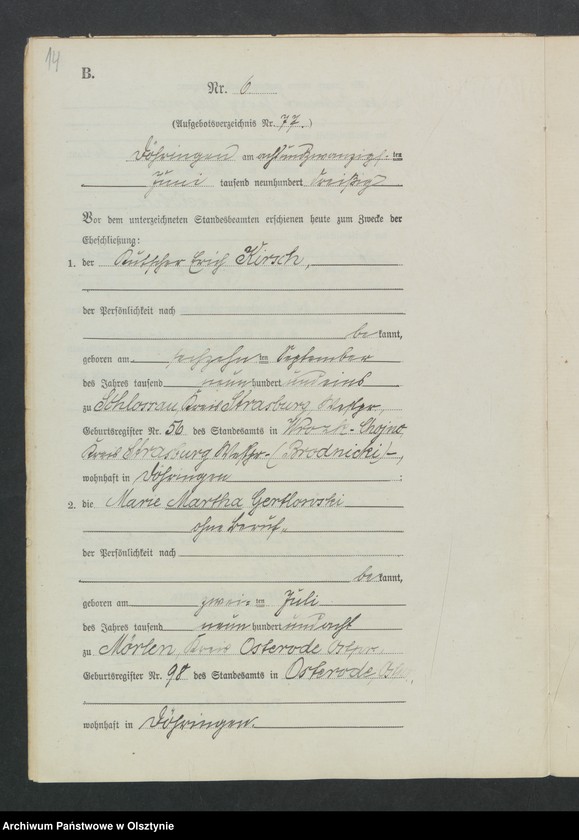 14
B.
Nr. 6
(Aufgebotsverzeichnis Nr. 77.)
Döhringen am achtundzwanzigsten
Juni tausend neunhundert dreißig
Vor dem unterzeichneten Standesbeamten erschienen heute zum Zwecke der
Eheschließung:
1. der Kutscher Erich Kirsch,
der Persönlichkeit nach
bekannt,
geboren am sechzehn ten September
des Jahres tausend neun hundert und eins
zu Schlossau, Kreis Strasburg Westpr.,
Geburtsregister Nr. 56 des Standesamts in
Kreis Strasburg Westpr. (Brodnicki),
wohnhaft in Döhringen ;
2. die Marie Martha Gertlowski
ohne Beruf.
der Persönlichkeit nach
bekannt,
geboren am zwei ten Juli
des Jahres tausend neun hundert und acht
zu Mörlen, Kreis Osterode Ostpr.
Geburtsregister Nr. 98 des Standesamts in Osterode, Ostpr.
wohnhaft in Döhringen.
Archiwum Państwowe w Olsztynie